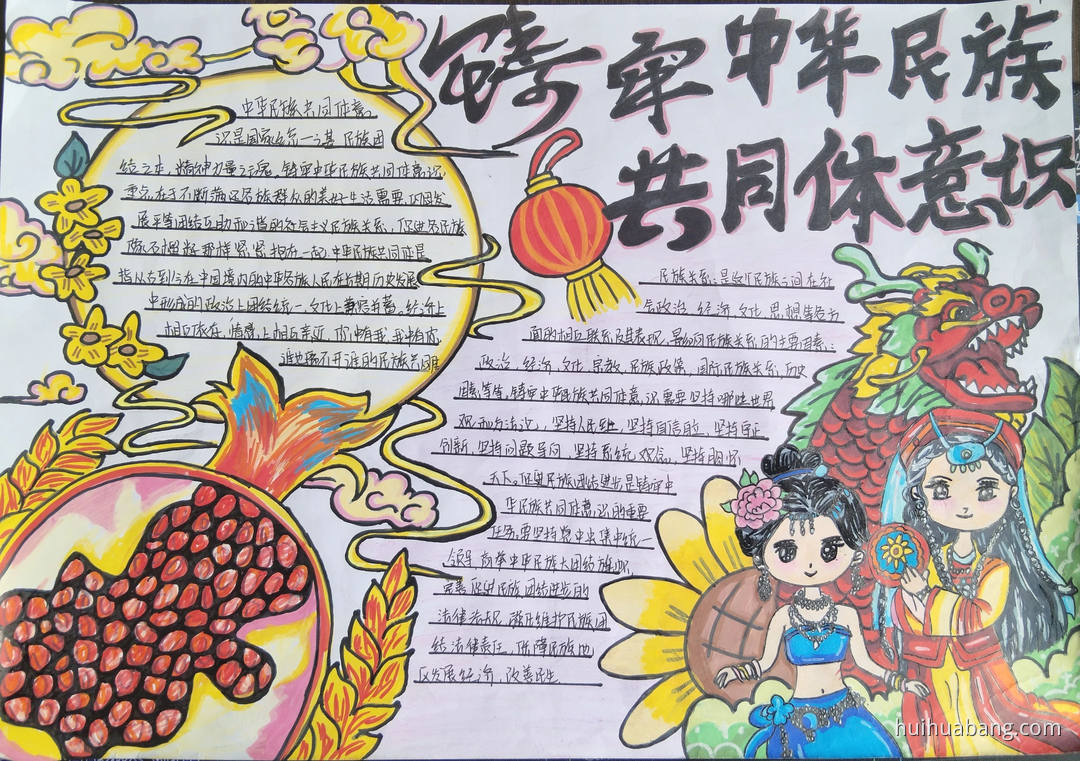 铸牢中华民族
共同体意识
中华民族共同体意
识是国家统一之基 民族团
结之本，精神力量之魂，铸牢中华民族共同体意识，
重点在于不断满足各族群众的美好生活需要，巩固发
展平等团结互助和谐的社会主义民族关系，促进各民族
像石榴籽那样紧紧抱在一起，中华民族共同体是
指从古到今在中国境内的中华各族人民在长期历史发展
中形成的政治上团结统一，文化上兼容并蓄。经济上
相互依存，情感上相互亲近，你中有我，我中有你，
谁也离不开谁的民族共同体
民族关系，是这民族之间在社
会政治，经济，文化，思想等各方
面的相互联系及其表现，影响民族关系的主要因素：
政治，经济，文化，宗教，民族政策，国际民族关系，历史
因素等等，铸牢中华民族共同体意识需要坚持哪些世界
观和方法论，坚持人民至上，坚持自信自立，坚持守正
创新，坚持问题导向，坚持系统观念，坚持胸怀
天下。促进民族团结进步是铸牢中
华民族共同体意识的重要
任务，要坚持党中央集中统一
领导
完善促进民族团结进步的
法律法规，维护民族团
结法律责任，保障民族地
区发展经济，改善民生
huihuabang.com